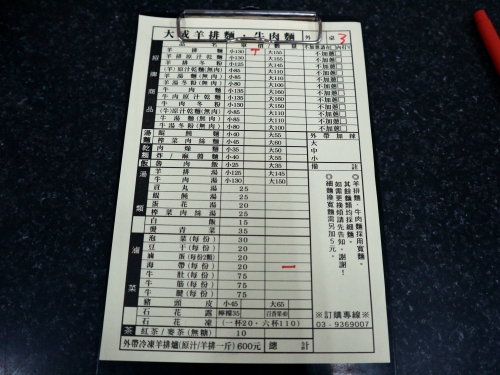 大成羊排麵．牛肉麵 外 桌 3
品名 單價/數量 不加蔥請在□內打V
招牌商品
羊排麵 小130 大150 不加蔥□
羊排原汁乾麵 小135 大155 不加蔥□
羊排冬粉 小130 大150 不加蔥□
(羊)原汁乾麵(無肉) 小85 大100 不加蔥□
羊湯麵(無肉) 小85 大100 不加蔥□
羊湯冬粉(無肉) 小85 大100 不加蔥□
牛肉麵 大160 不加蔥□
牛肉原汁乾麵 大165 不加蔥□
牛肉冬粉 大160 不加蔥□
(牛)原汁乾麵(無肉) 大110 不加蔥□
牛湯麵(無肉) 小85 大100 不加蔥□
牛湯冬粉(無肉) 小85 大100 不加蔥□
湯麵
餛飩麵 小40 大55
榨菜肉絲麵 小40 大55
乾麵飯
肉燥麵 小30 大45
炸/麻醬麵 小35 大50
魯肉飯 小25 大35
湯類
羊排湯 小125 大145
牛肉湯 小130 大150
貢丸湯 25
餛飩湯 25
蛋花湯 20
榨菜肉絲湯 25
白飯 15
燙青菜 35
滷菜
泡菜(每份) 30
豆干(每份) 20
滷蛋(每份2顆) 20
海帶(每份) 20
牛肚(每份) 75
牛筋(每份) 75
牛腱(每份) 75
豬頭皮 小45 大65
石花露 檸檬35
石花凍 (一杯20．六杯110)
茶 紅茶/麥茶(無糖) 10
外帶冷凍羊排爐(原汁/羊排一斤)600元 總計
外帶加辣
大
中
小
備註
◎羊排麵、牛肉麵採用寬麵，
其餘麵類均採細麵，
如需更換煩請先告知，謝謝！
◎細麵換寬麵需另加5元。
※訂購專線※
03-9369007